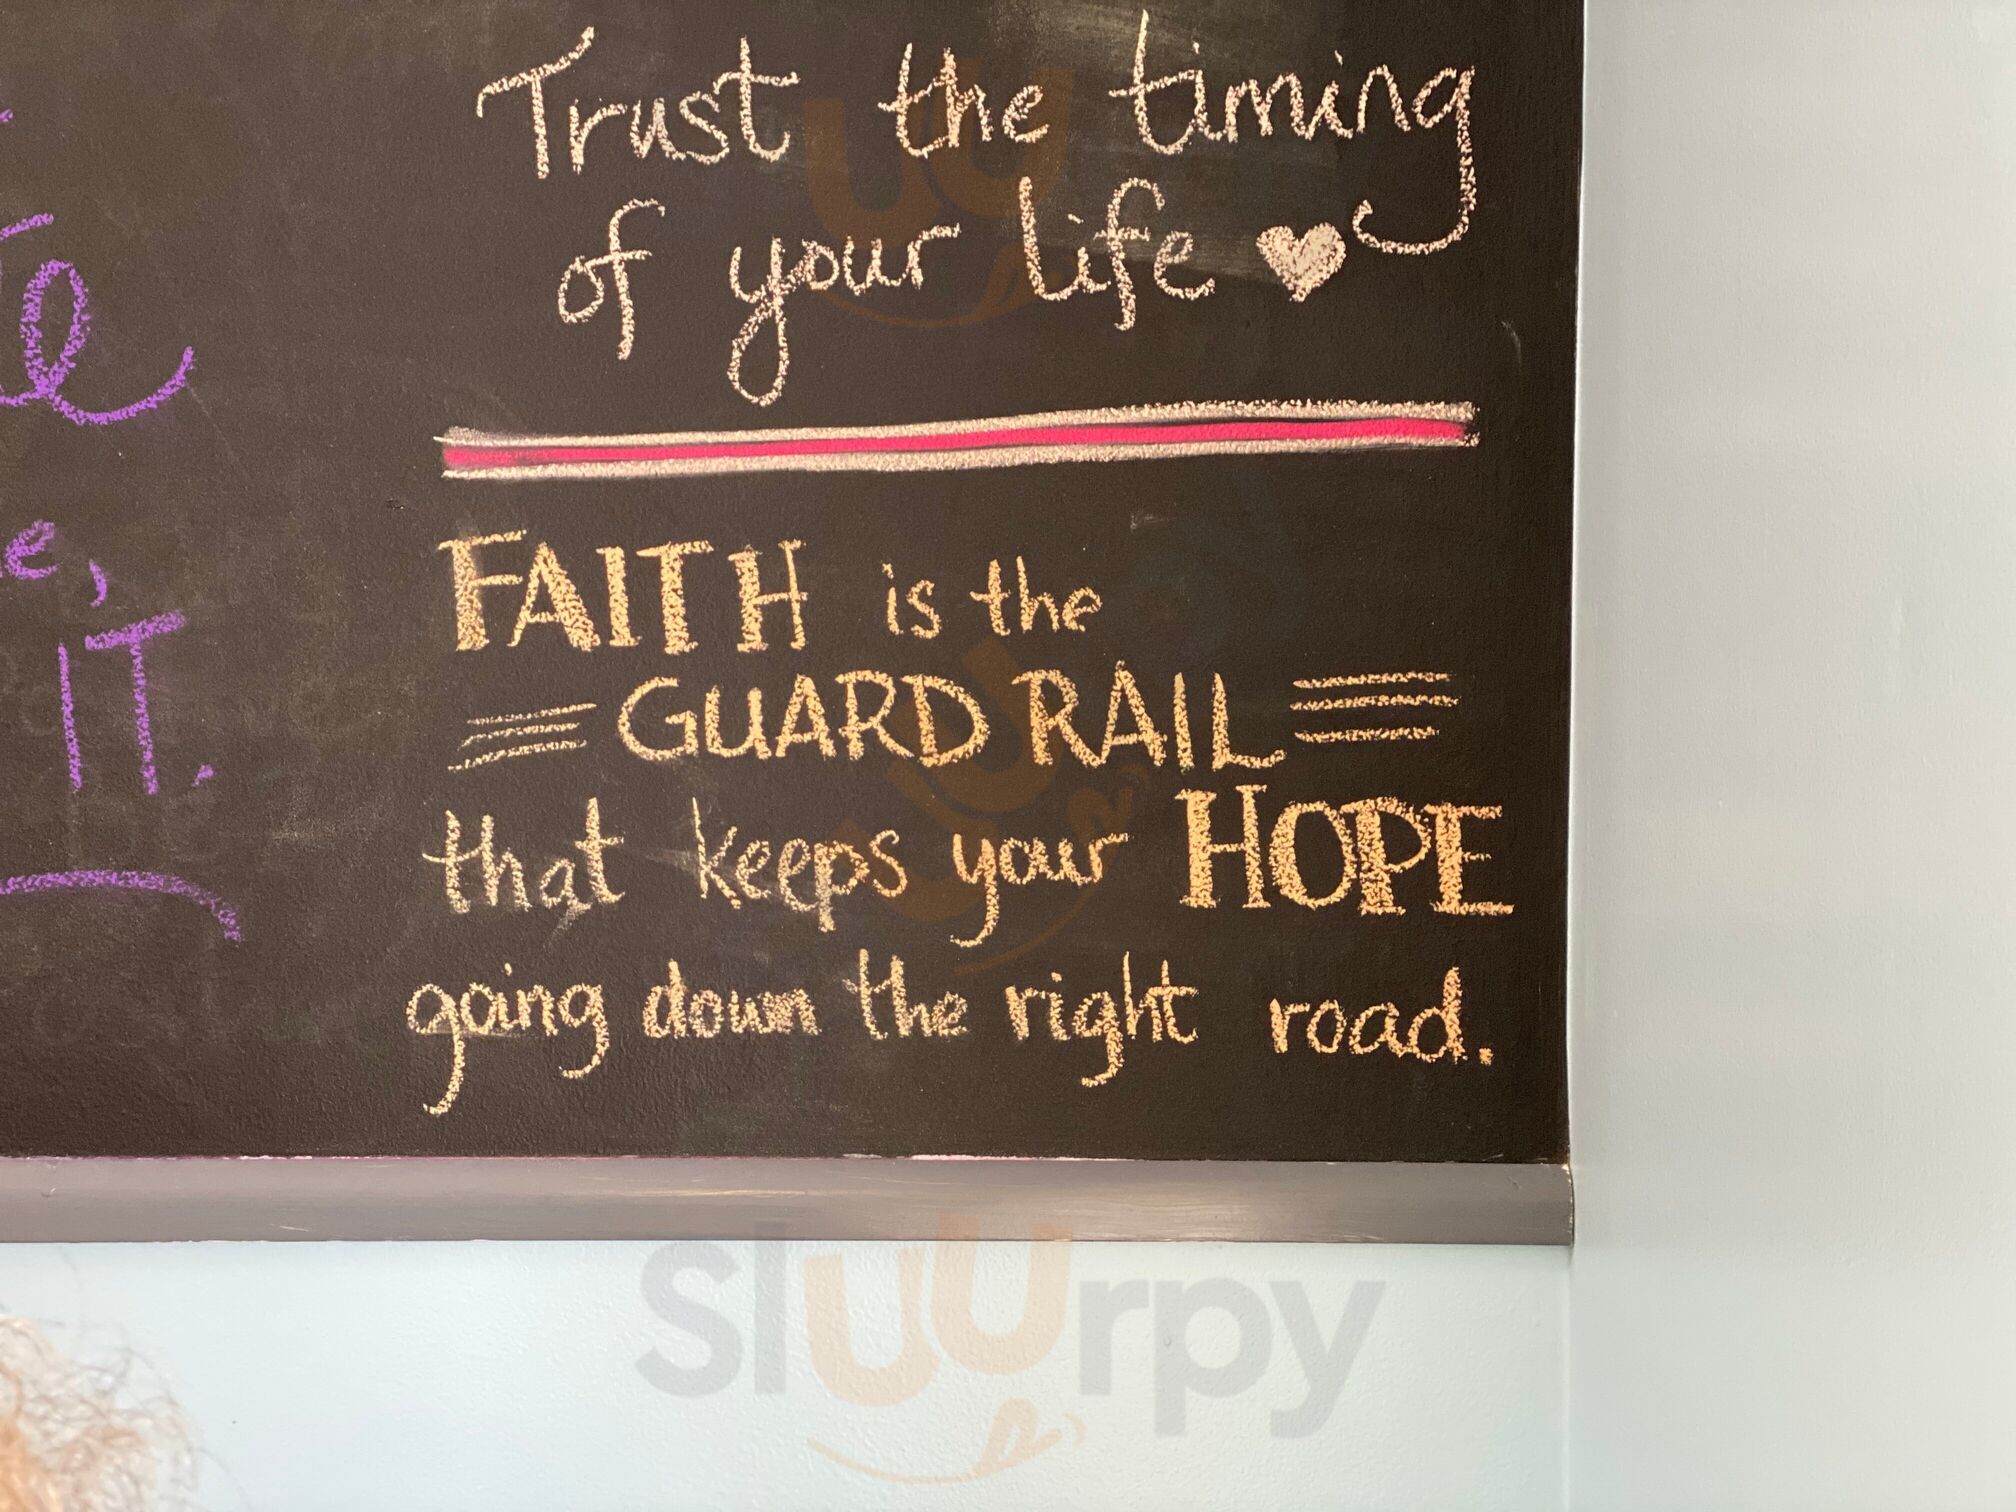 Trust the timing
of your life
FAITH is the
GUARD RAIL
that keeps your HOPE
going down the right road.
IT.
sluurpy